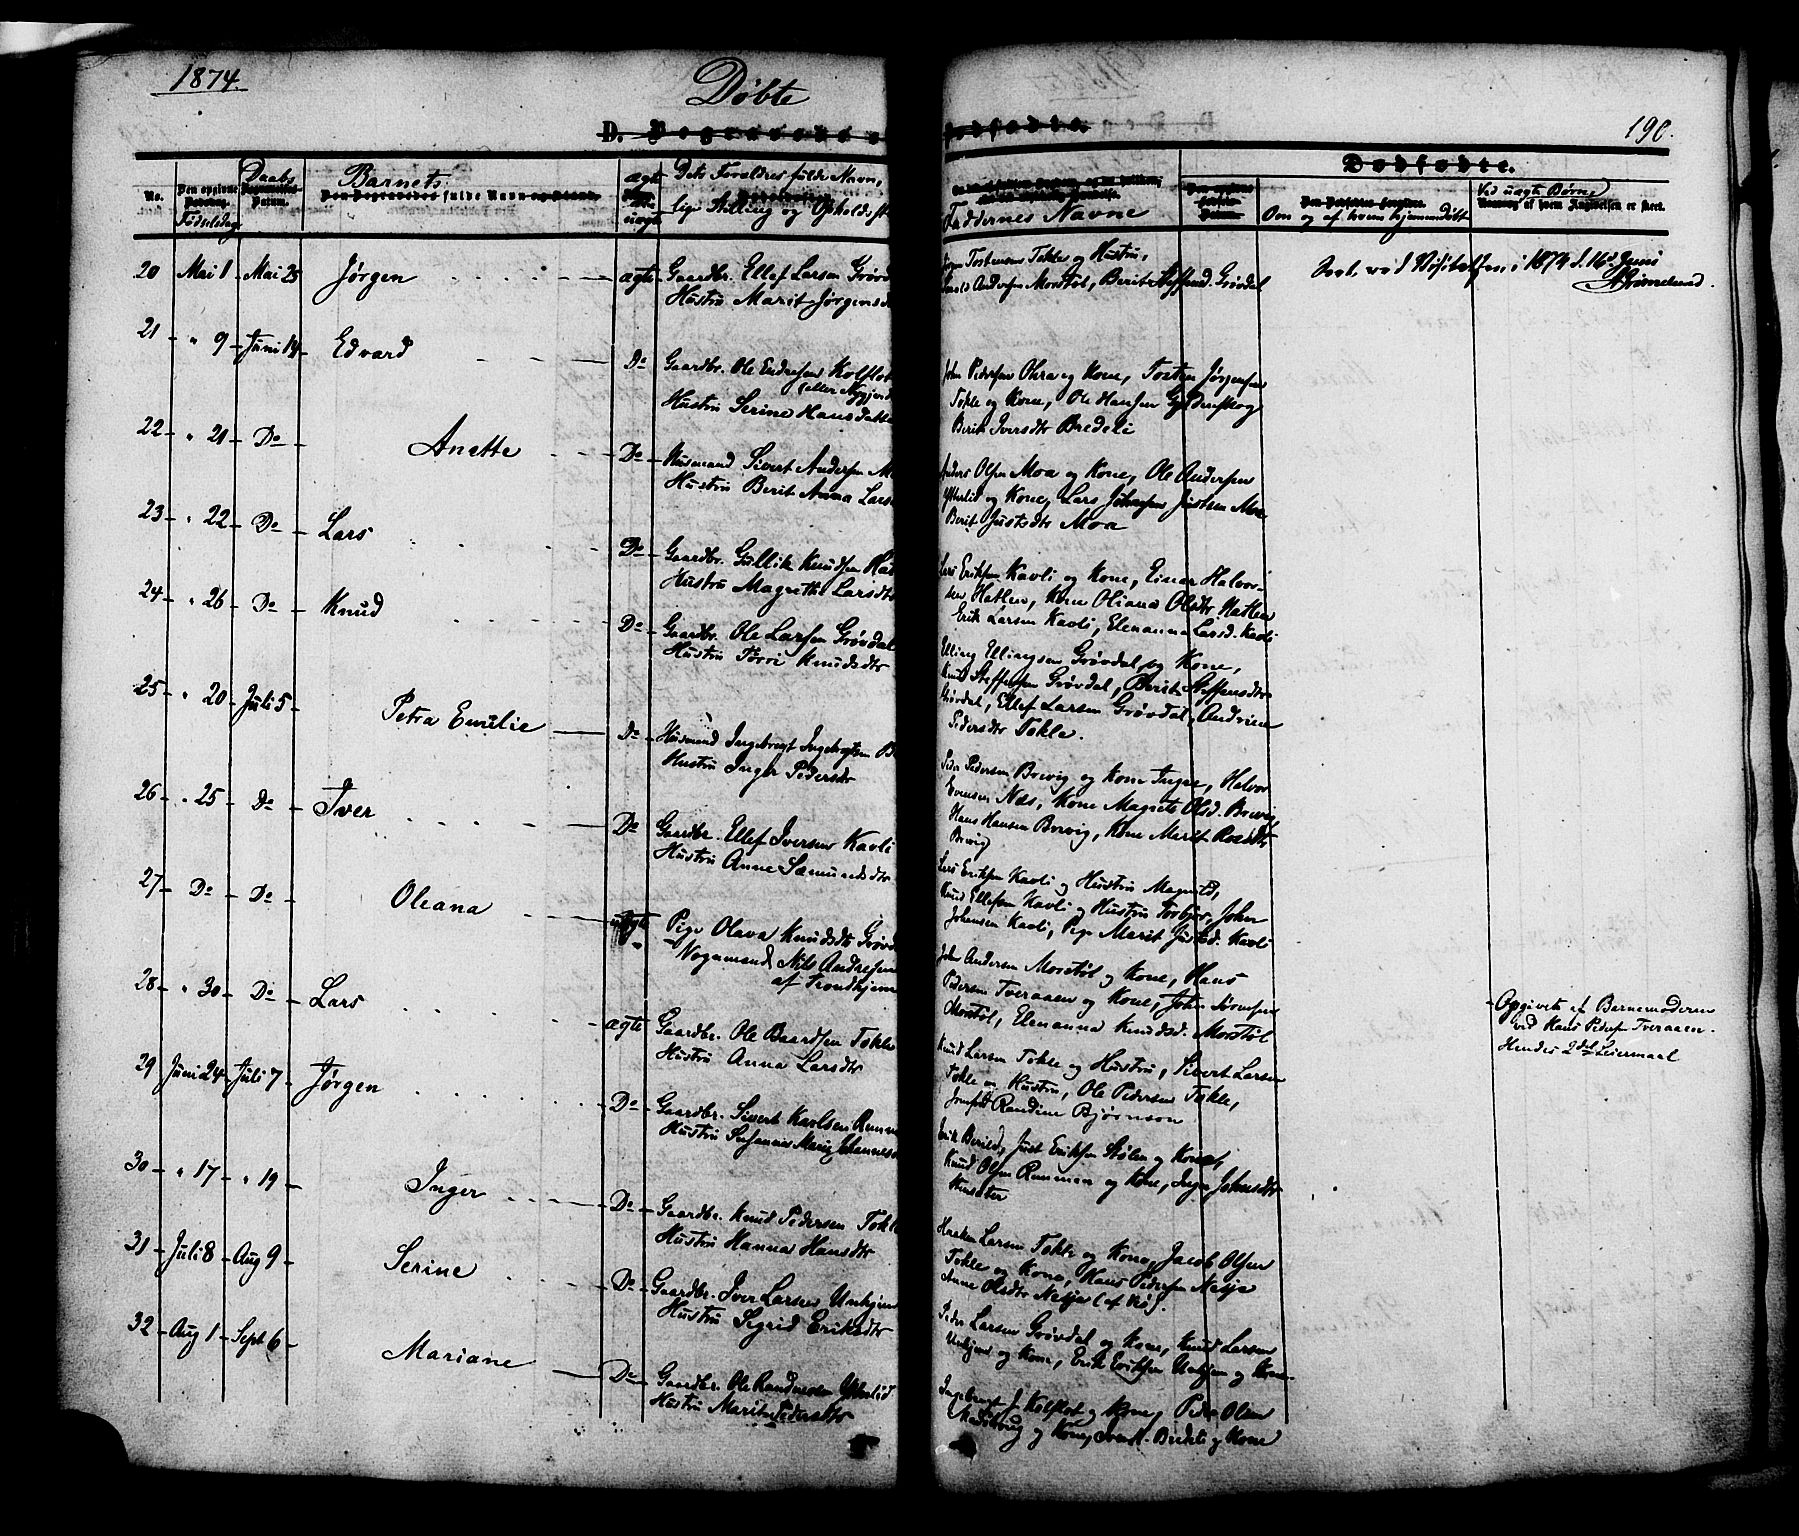 1874.
Døbte
190.
No. Fødselsdag Daabs Datum. Barnets fulde Navn ægte uægte Dets Forældres fulde Navn,
Stilling og Opholdsst
Faddernes Navne
Om og af hvem hjemmedøbt
Ved uægte Børn
af hvem Angivelsen er skeet.
20 Mai 1 Mai 25 Jørgen ægte Gaardbr. Ellef Larsen Grøvd
Hustru Marit Jørgensd
Torstensen Tokle og Hustru,
Andersen Morstøl, Berit Steffensd. Grövdal
Seet ved Visitatsen i 1874 d. 16d Juni
21 " 9 Juni 14 Edvard Do Gaardbr. Ole Endresen Kolflot
(eller Nygjerd
Hustru Serine Hansdatter
John Pedersen Ohra og Kone, Tosten Jørgensen
Tokle og Kone, Ole Hansen Gyldenskog
Berit Iversdtr Bredeli
22 " 21 Do Anette Do Husmand Sivert Andersen M
Hustru Berit Anna Lars
Anders Olsen Moa og Kone, Ole Andersen
Ytterlie og Kone, Lars Johnsen Justsen Moa
Berit Justsdtr Moa
23 " 22 Do Lars Do Gaardbr. Gullik Knudsen Hat
Hustru Magrethe Larsdtr
Lars Eriksen Kavli og Kone, Einar Halvor-
sen Hatlen, Kone Oliana Olsdtr Hatlen
Erik Larsen Kavli, Elenanna Larsd. Kavli
24 " 26 Do Knud Do Gaardbr. Ole Larsen Grøvdal
Hustru Torri Knudsdtr
Elling Ellingsen Grøvdal og Kone,
Knud Steffensen Grøvdal, Berit Steffensdtr
Grövdal, Ellef Larsen Grøvdal, Andrine
Pedersdtr Tokle.
25 " 20 Juli 5 Petra Emilie Do Husmand Ingebrigt Ingebrigtsen B
Hustru Inger Pedersdtr
Peder Pedersen Brevig og Kone Inger, Halvor
Evensen Næs, Kone Magrete Olsd. Brevig,
Hans Hansen Brevig, Kone Marit Roaldsdtr
Brevig
26 " 25 Do Iver Do Gaardbr. Ellef Iversen Kavli
Hustru Anne Sæmundsdtr
Lars Eriksen Kavli og Hustru Magnild,
Knud Ellefsen Kavli og Hustru Torbjør, John
Johnsen Kavli, Pige Marit Justsd. Kavli
27 Do Do Oleana uægte Pige Olava Knudsdtr Grøvd
Nogamand Nils Andresen
af Trondhjem
John Andersen Morstøl og Kone, Hans
Pedersen Tveraaen og Kone, John Sørensen
Morstøl, Elenanna Knudsd. Morstøl
Opgivets af Barnemoderen
ved Hans Peders. Tveraaen.
Hendes 2det Leiermaal
28 " 30 Do Lars ægte Gaardbr. Ole Baardsen Tokle
Hustru Anna Larsdtr
Knud Larsen Tokle og Hustru, Sivert Larsen
Tokle og Hustru, Ole Pedersen Tokle,
Jomfru Randine Bjørnson
29 Juni 24 Juli 7 Jørgen Do Gaardbr. Sivert Karlsen Remm
Hustru Susanna Marie Johannesd
Erik Berild, Just Eriksen Stølen og Kone,
Knud Olsen Remmen og Kone, Inger Johnsdtr
30 " 17 " 19 Inger Do Gaardbr. Knud Pedersen Tokl
Hustru Hanna Hansdtr
Haaken Larsen Tokle og Kone, Jacob Olsen
Tokle og Kone, Hans Pedersen Nesje
Anne Olsdtr Nesje (af Nø).
31 Juli 8 Aug 9 Serine Do Gaardbr. Iver Larsen Unhjem
Hustru Sigrid Eriksdtr
Peder Larsen Grøvdal og Kone, Knud Larsen
Unhjem og Kone, Erik Eriksen Unhjem og Kone.
32 Aug 1 Sept 6 Mariane Do Gaardbr. Ole Randersen Ytterlid
Hustru Marit Pedersdtr
Ingebrigt J. Kolflot og Kone, Peder Olsen
og Kone, Bredeli og Kone